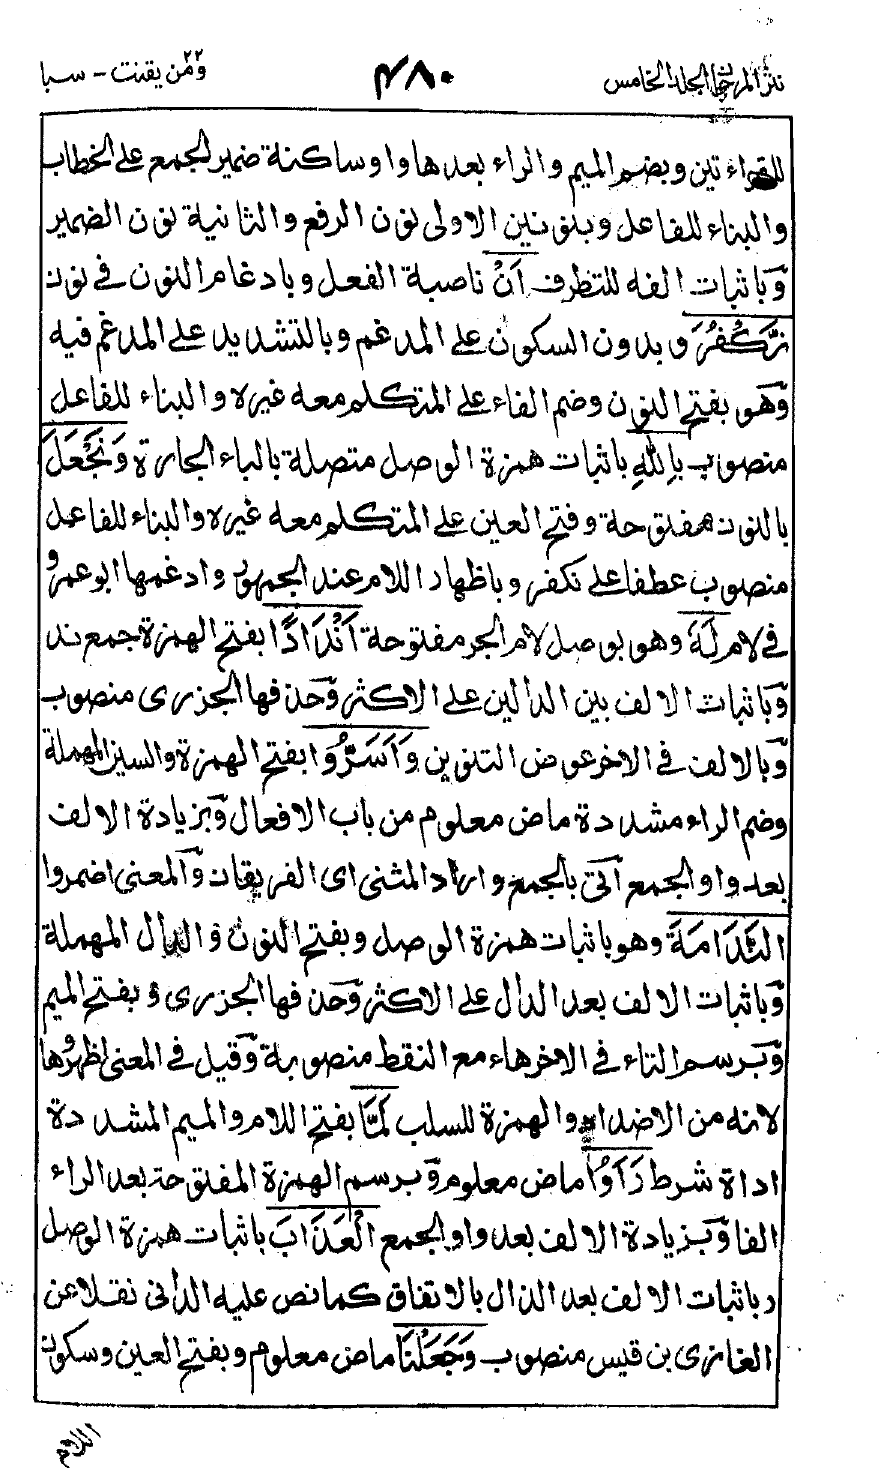 نثر المرجان الجلد الخامس ٤٨٠ ومن يقنت ٢٢ - سبا
للقراءتين وبضم الميم والراء بعدها واو ساكنة ضمير الجمع على الخطاب
والبناء للفاعل وبنونين الاولى نون الرفع والثانية نون الضمير
وباثبات الفه للتطرف اَنْ ناصبة الفعل وبادغام النون في نون
نَّكْفُرَ وبدون السكون على المدغم وبالتشديد على المدغم فيه
وهو بفتح النون وضم الفاء على المتكلم معه غيره والبناء للفاعل
منصوب بِاللهِ باثبات همزة الوصل متصلة بالباء الجارة وَنَجْعَلَ
بالنون مفتوحة وفتح العين على المتكلم معه غيره والبناء للفاعل
منصوب عطفا على نكفر وباظهار اللام عند الجمهور وادغمها ابو عمرو
في لام لَهٗ وهو بوصل لام الجر مفتوحة اَنْدَادًا بفتح الهمزة جمع ند
وباثبات الالف بين الدالين على الاكثر وحذفها الجزرى منصوب
وبالالف في الاخر عوض التنوين وَاَسَرُّوا بفتح الهمزة والسين المهملة
وضم الراء مشددة ماض معلوم من باب الافعال وبزيادة الالف
بعد واو الجمع اتى بالجمع واراد المثنى اى الفريقان والمعنى اضمروا
النَّدَامَةَ وهو باثبات همزة الوصل وبفتح النون والدال المهملة
وباثبات الالف بعد الدال على الاكثر وحذفها الجزرى وبفتح الميم
وبرسم التاء في الاخر هاء مع النقط منصوبة وقيل في المعنى اظهروها
لانه من الاضداد والهمزة للسلب لَمَّا بفتح اللام والميم المشددة
اداة شرط رَاَوُا ماض معلوم وبرسم الهمزة المفتوحة بعد الراء
الفا وبزيادة الالف بعد واو الجمع الْعَذَابَ باثبات همزة الوصل
وباثبات الالف بعد الذال بالاتفاق كما نص عليه الدانى نقلا عن
الغازى بن قيس منصوب وَجَعَلْنَا ماض معلوم وبفتح العين وسكون
اللام